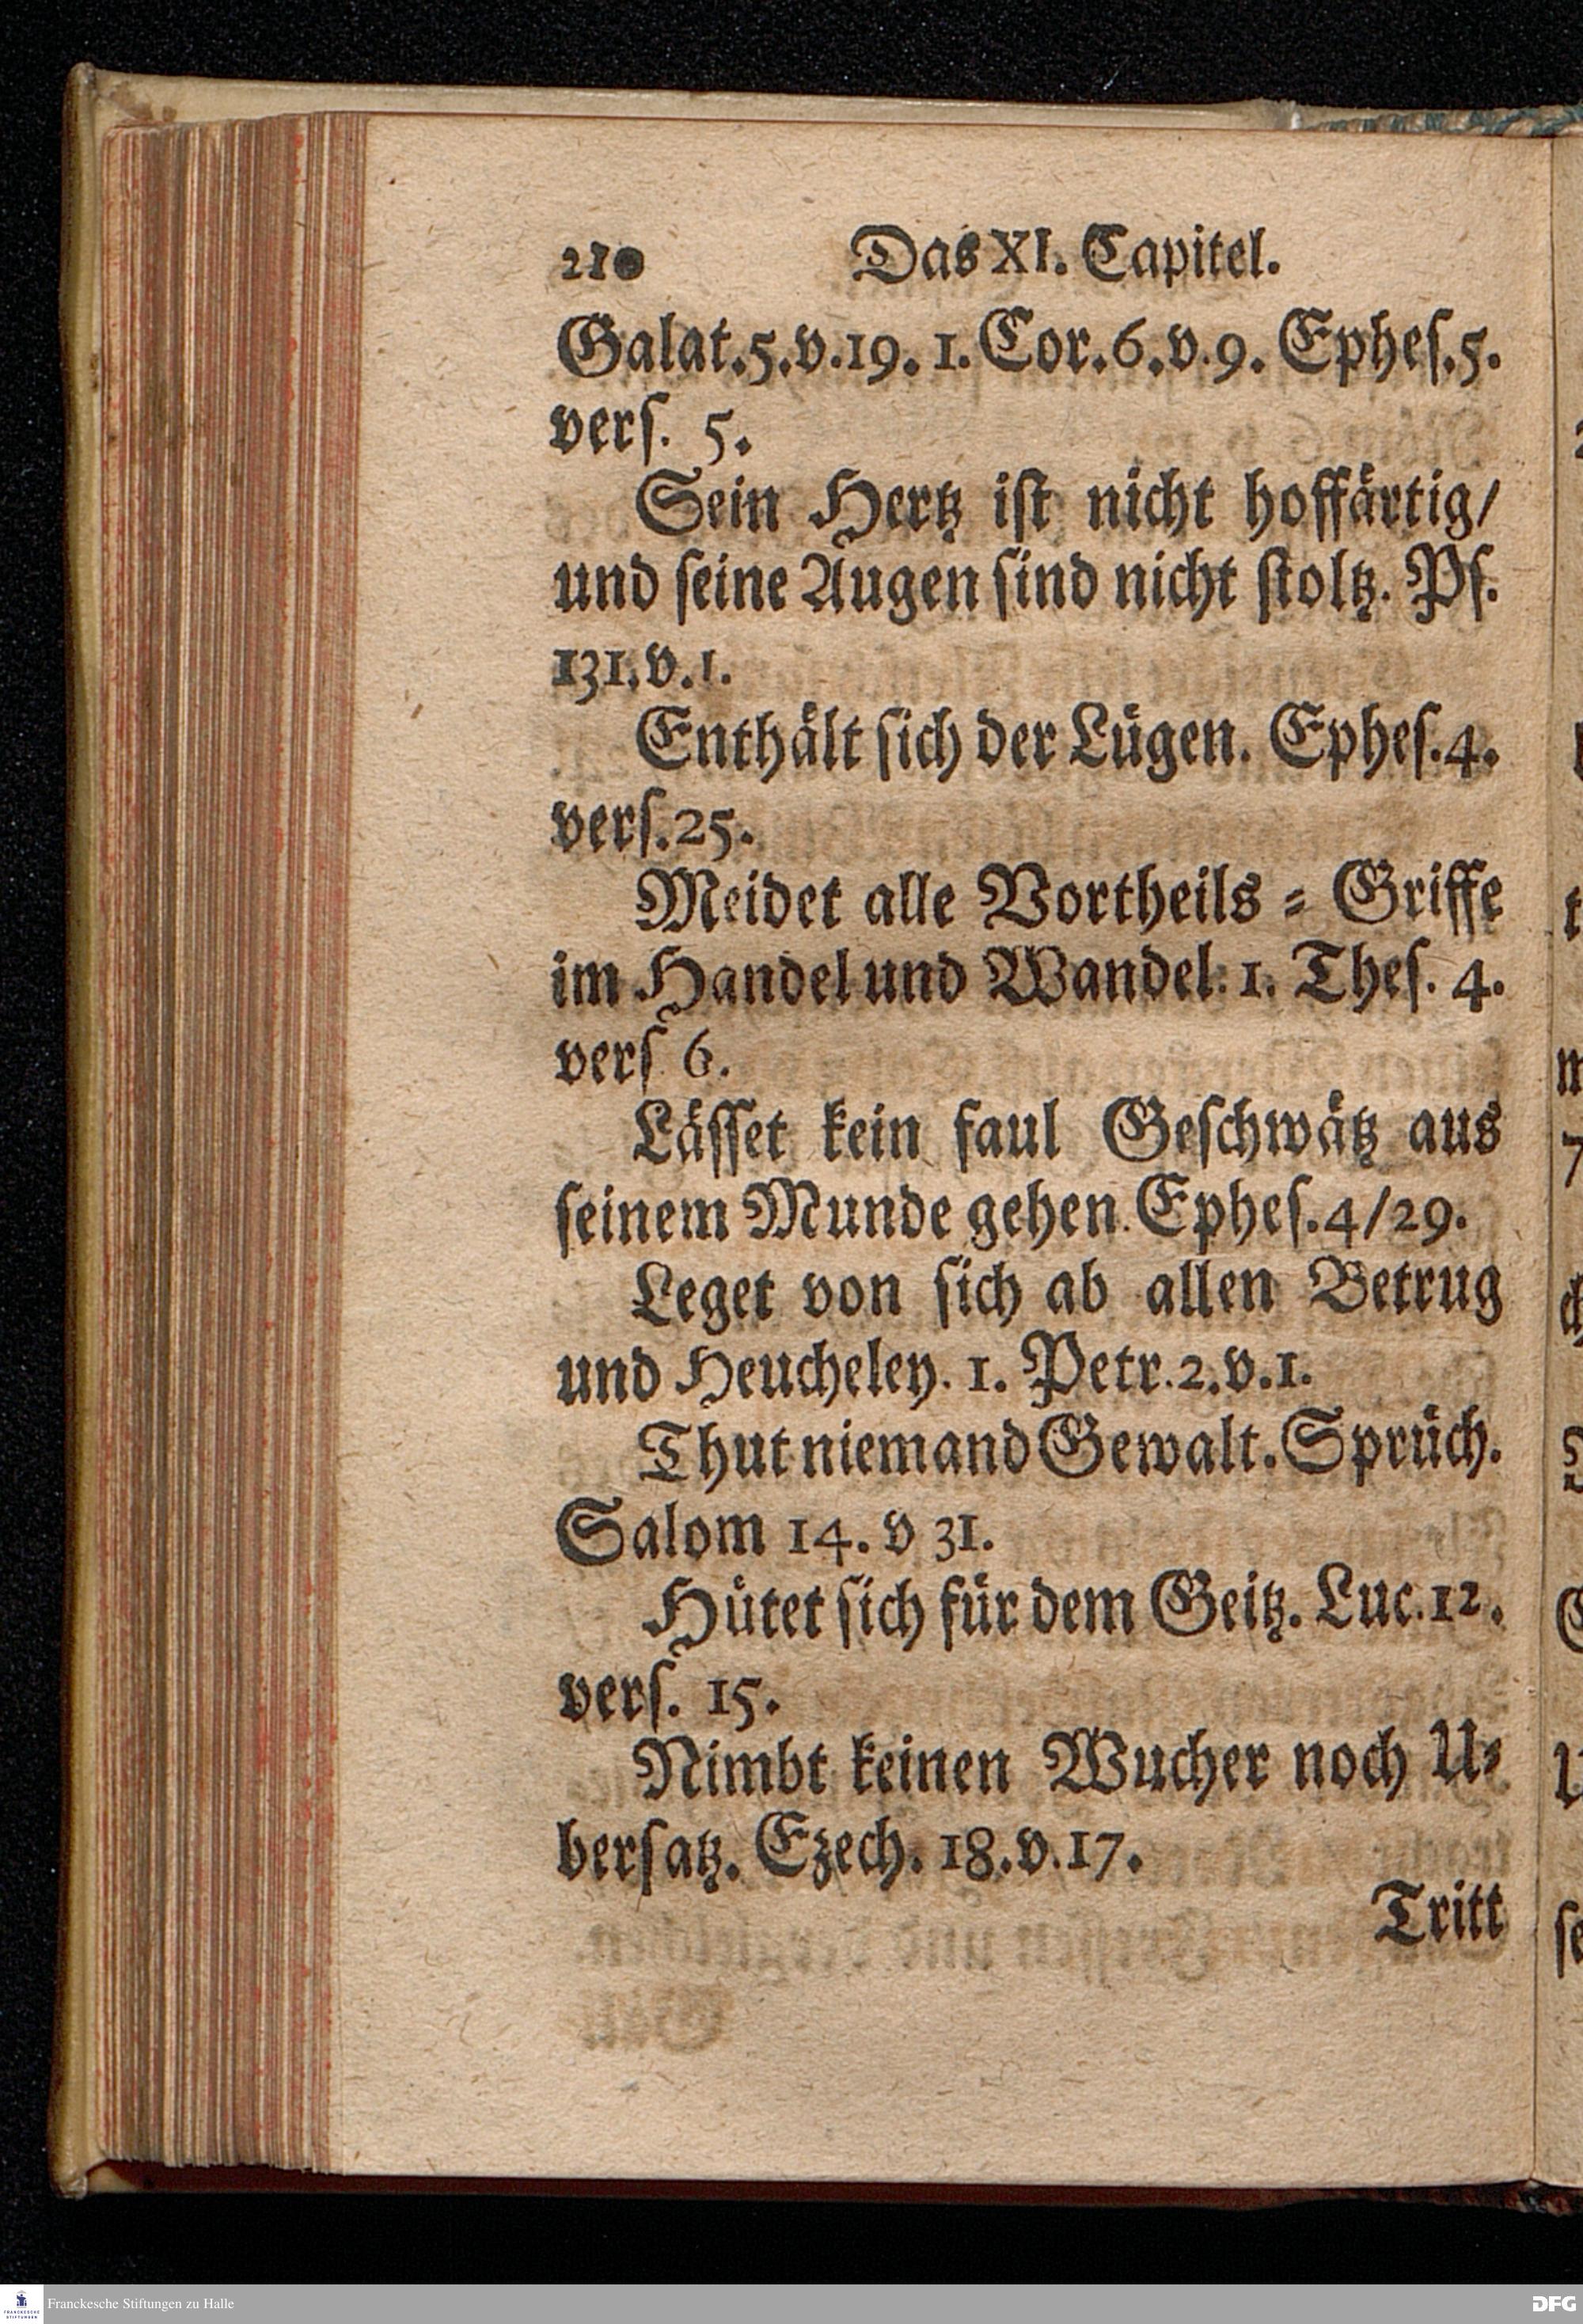 210 Das XI. Capitel.
Galat.5.v.19. 1. Cor. 6.v.9. Epheſ.5.
verſ. 5.
Sein Hertz iſt nicht hoffärtig/
und ſeine Augen ſind nicht ſtoltz. Pſ.
131.v.1.
Enthält ſich der Lügen. Epheſ.4.
verſ.25.
Meidet alle Vortheils⸗Griffe
im Handel und Wandel. 1. Theſ. 4.
verſ 6.
Läſſet kein faul Geſchwätz aus
ſeinem Munde gehen. Epheſ.4/29.
Leget von ſich ab allen Betrug
und Heucheley. 1. Petr.2.v.1.
Thut niemand Gewalt. Sprüch.
Salom 14. v 31.
Hütet ſich für dem Geitz. Luc.12.
verſ. 15.
Nimbt keinen Wucher noch U⸗
berſatz. Ezech. 18.v.17.
Tritt
Franckesche Stiftungen zu Halle
DFG